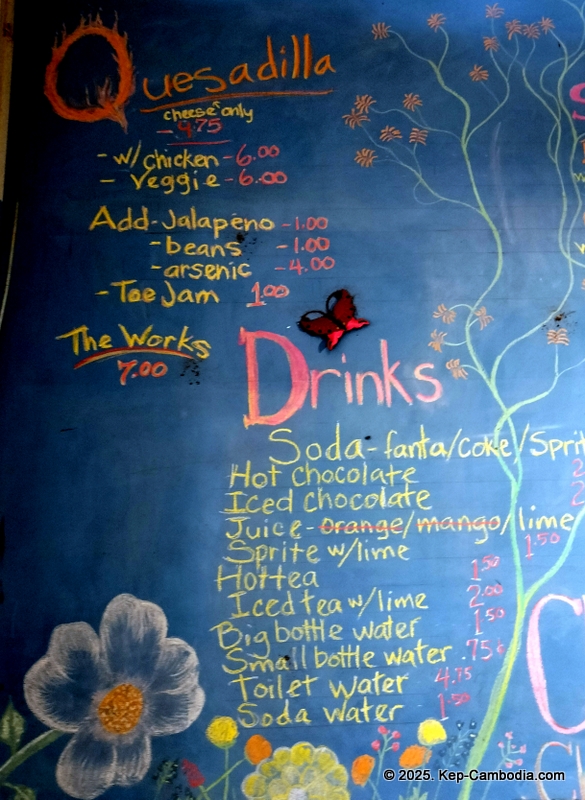 Quesadilla
cheese only
- 4.75
- w/chicken - 6.00
- Veggie - 6.00
Add - Jalapeno - 1.00
- beans - 1.00
- arsenic - 4.00
- Toe Jam 1.00
The Works
7.00
Drinks
Soda - fanta/Coke/Sprit
Hot chocolate 2
Iced chocolate 2
Juice - orange/mango/lime
Sprite w/lime 1.50
Hot tea 1.50
Iced tea w/lime 2.00
Big bottle water 1.50
Small bottle water .75¢
Toilet water 4.75
Soda water 1.50
© 2025. Kep-Cambodia.com